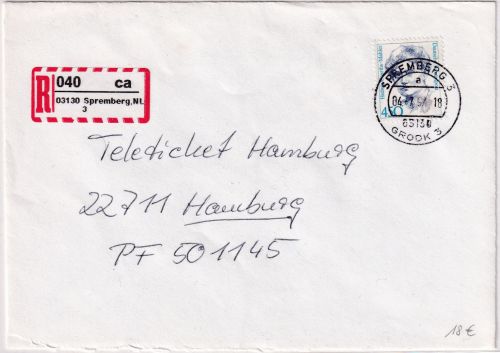 R 040 ca
03130 Spremberg, NL
3
SPREMBERG 3
a
18
03130
GRODK 3
450
Teleticket Hamburg
22711 Hamburg
PF 501145
18 €